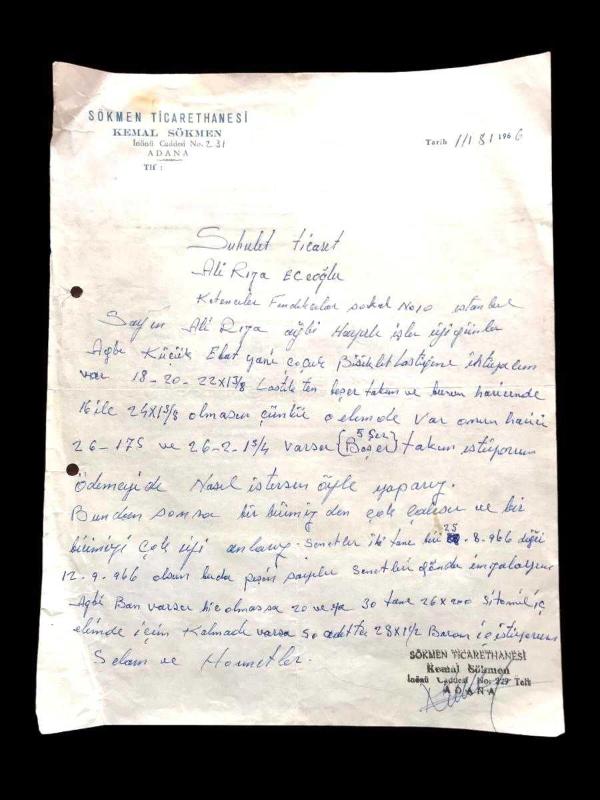 SÖKMEN TİCARETHANESİ
KEMAL SÖKMEN
İnönü Caddesi No. 231
ADANA
Tlf :
Tarih 11/8/1966
Suhulet Ticaret
Ali Rıza ECEoğlu
Ketenciler Fındıkcılar sokak No 10 istanbul
Sayın Ali Rıza ağbi Hayırlı işler iyi günler
Agbi Küçük Ebat yani çoçuk Bisiklet Lastiğine ihtiyacım
var 18-20-22X1 3/8 Lastikten beşer takım ve bunun haricinde
16 ile 24X1 3/8 olmasın çünkü o elimde var onun harici
26-175 ve 26-2-1 3/4 varsa (Beşer) 5 şer takım istiyorum
Ödemeyide Nasıl istersen öyle yaparız.
Bundan sonra bir birimizden çok çalışır ve bir
birimizi çok iyi anlarız. Senetler iki tane biri 25-8-966 diğeri
12.9.966 olsun buda peşin sayılır Senetleri gönder imzalayım
Agbi Ban varsa hiç olmassa 20 veya 30 tane 26x200 iç
elimde için Kalmadı varsa 50 adette 28x1 1/2 istiyorum
Selam ve Hürmetler.
SÖKMEN TİCARETHANESİ
Kemal Sökmen
İnönü Caddesi No: 229 Telf
ADANA